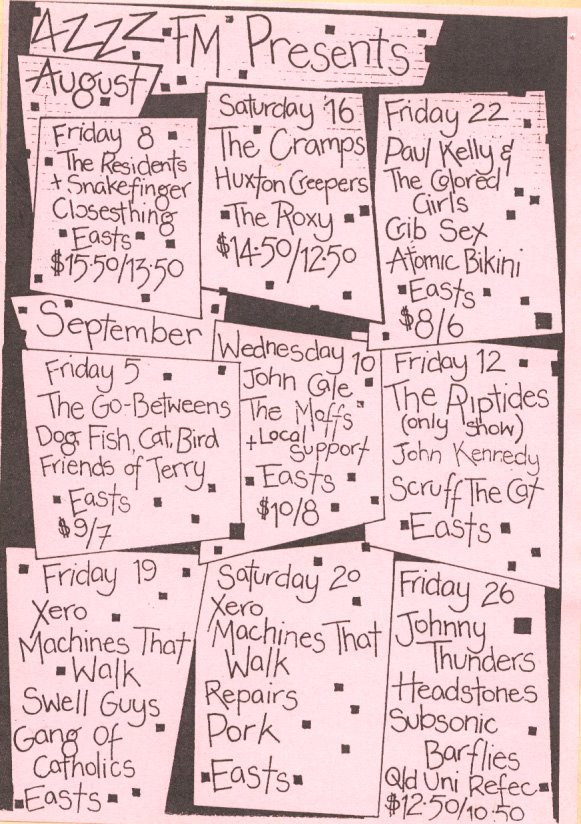 4ZZZ FM Presents
August
Friday 8
The Residents
+ Snakefinger
Closesthing
Easts
$15.50/13.50
Saturday '16
The Cramps
Huxton Creepers
The Roxy
$14.50/12.50
Friday 22
Paul Kelly &
The Colored
Girls
Crib Sex
Atomic Bikini
Easts
$8/6
September
Friday 5
The Go-Betweens
Dog, Fish, Cat, Bird
Friends of Terry
Easts
$9/7
Wednesday 10
John Cale
The Moffs
+ Local
Support
Easts
$10/8
Friday 12
The Riptides
(only show)
John Kennedy
Scruff The Cat
Easts
Friday 19
Xero
Machines That
Walk
Swell Guys
Gang of
Catholics
Easts
Saturday 20
Xero
Machines That
Walk
Repairs
Pork
Easts
Friday 26
Johnny
Thunders
Headstones
Subsonic
Barflies
Qld Uni Refec
$12.50/10.50